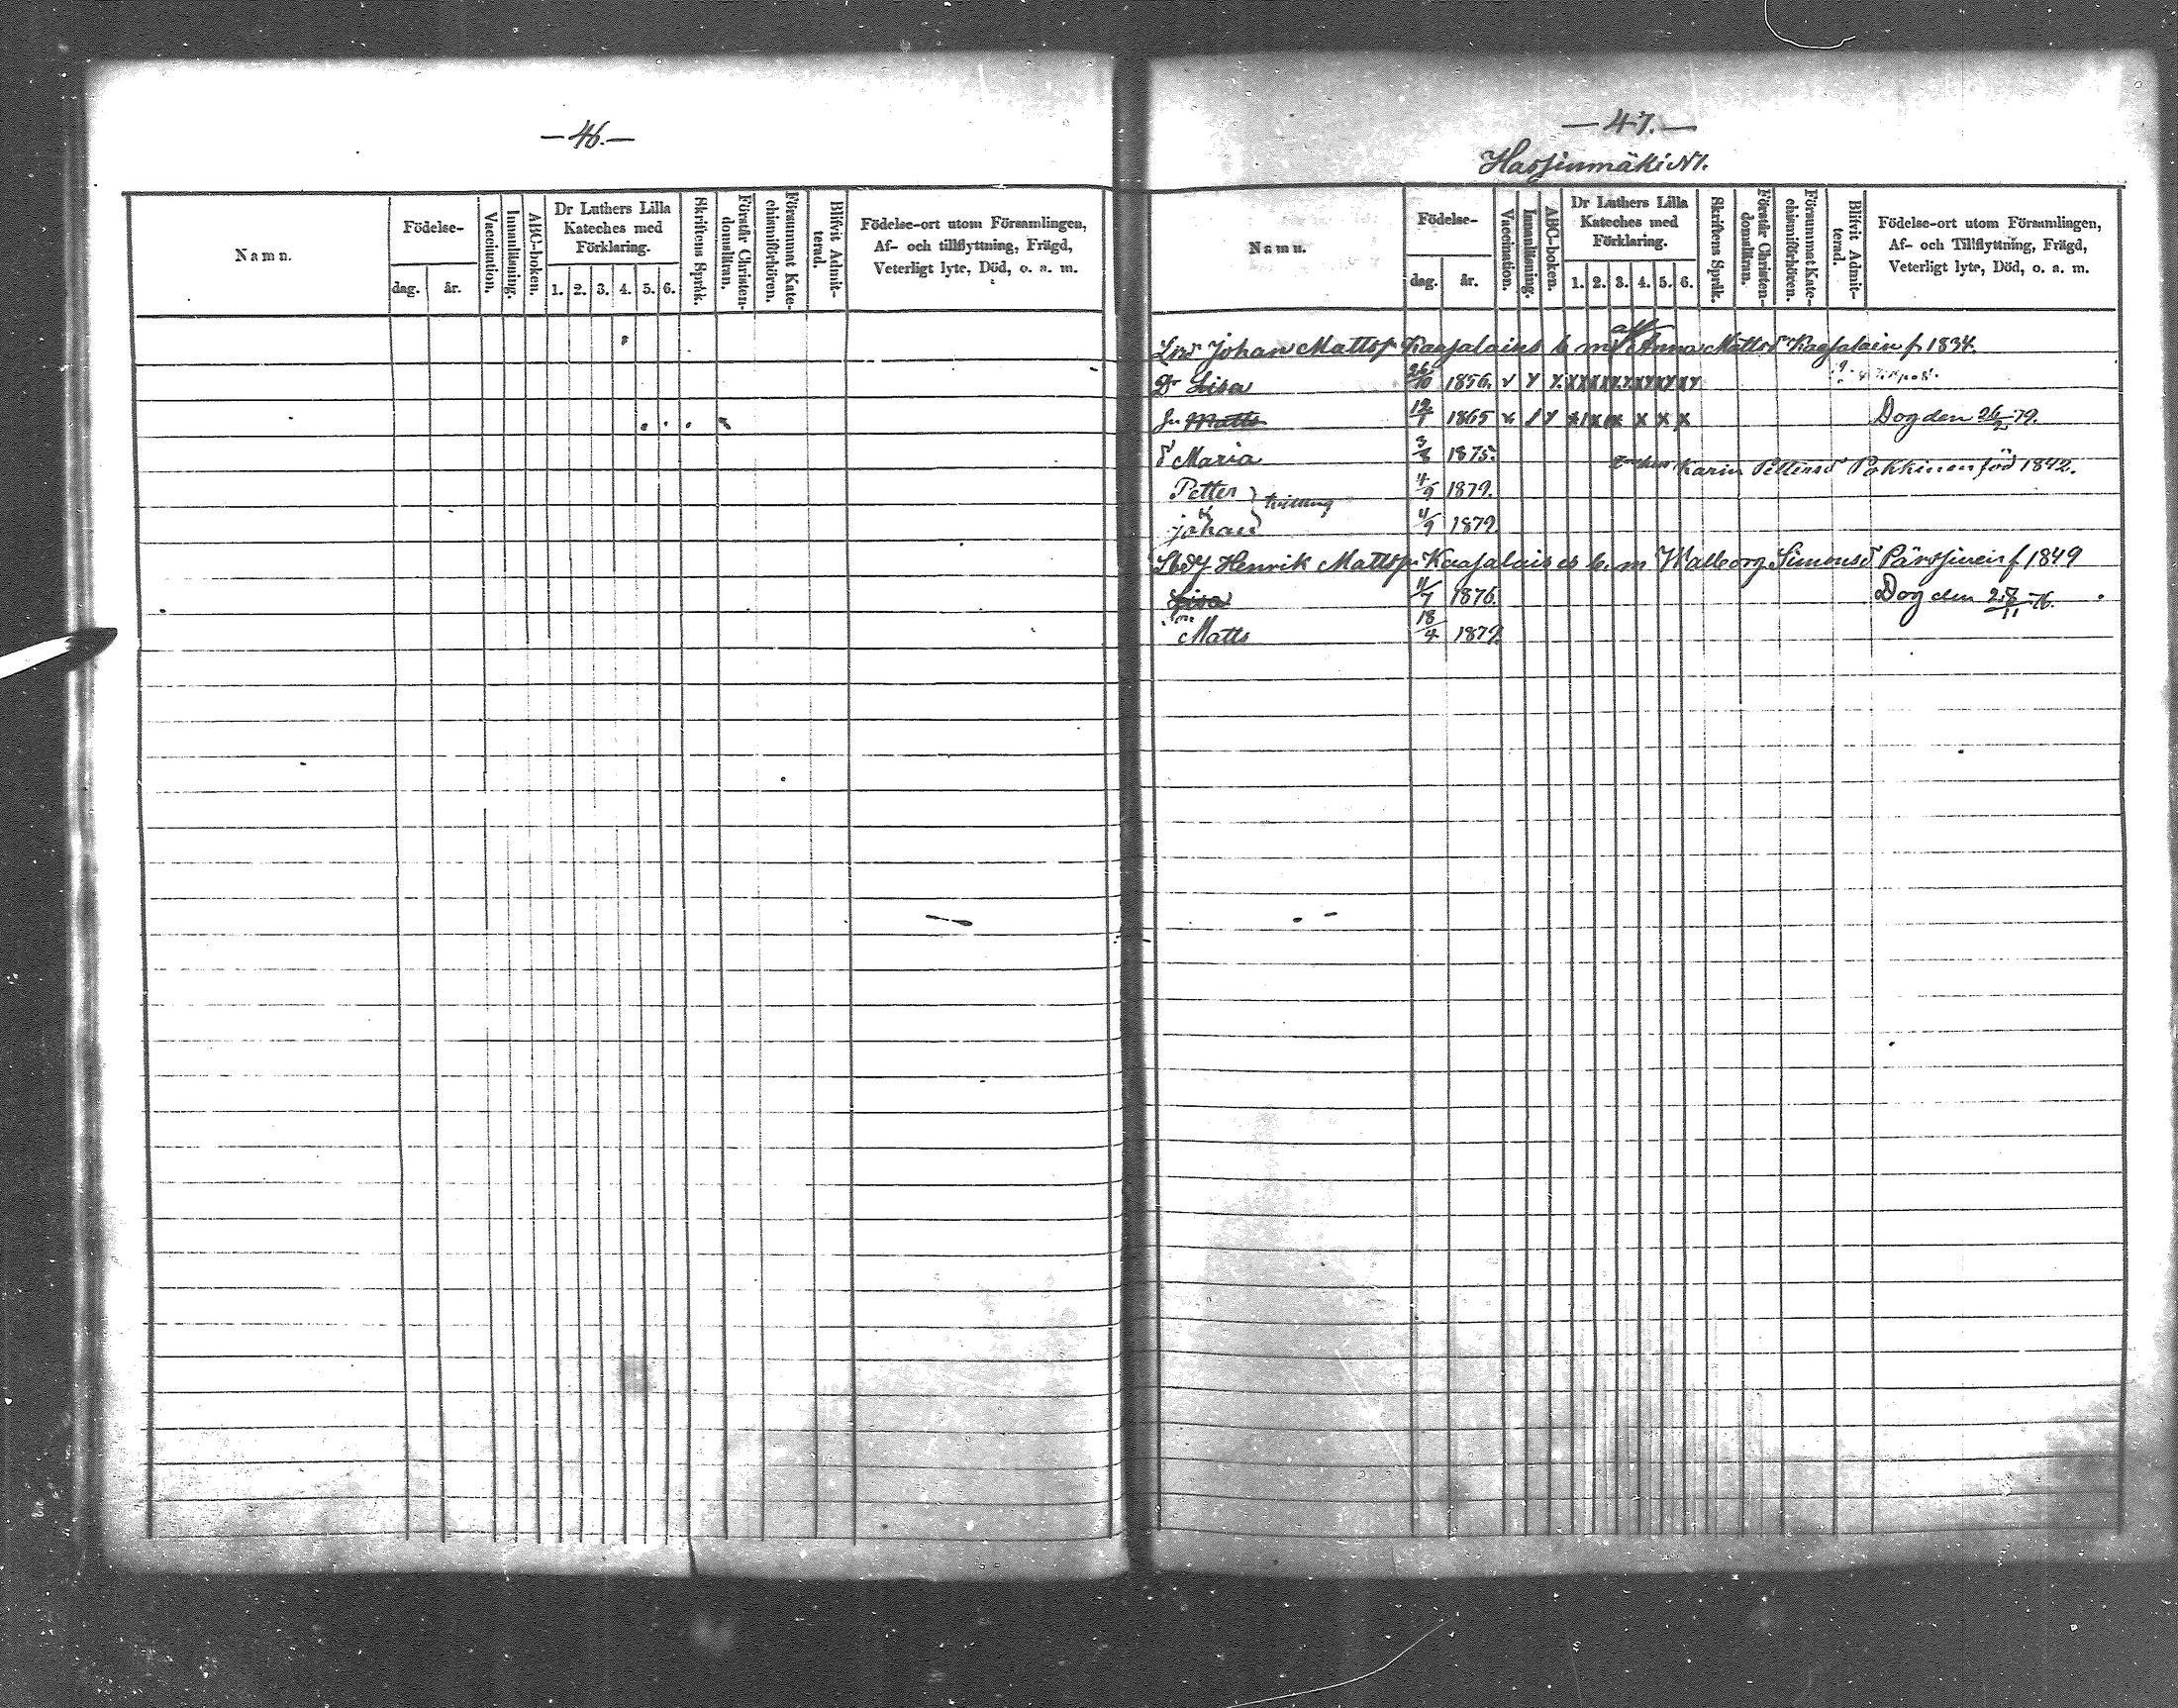 —46.—
Namn.
Födelse-
dag.
år.
Vaccination.
Innanläsning.
ABC-boken.
Dr Luthers Lilla
Kateches med
Förklaring.
1. 2. 3. 4. 5. 6.
Skriftens Språk.
Förstår Christen-
domsläran.
Försummat Kate-
chismiförhören.
Blifvit Admit-
terad.
Födelse-ort utom Församlingen,
Af- och tillflyttning, Frägd,
Veterligt lyte, Död, o. a. m.
—47.—
Hassinmäki N1.
Namn.
Födelse-
dag.
år.
Vaccination.
Innanläsning.
ABC-boken.
Dr Luthers Lilla
Kateches med
Förklaring.
1. 2. 3. 4. 5. 6.
Skriftens Språk.
Förstår Christen-
domsläran.
Försummat Kate-
chismiförhören.
Blifvit Admit-
terad.
Födelse-ort utom Församlingen,
Af- och Tillflyttning, Frägd,
Veterligt lyte, Död, o. a. m.
Johan Mattss. Kaasalains b. m. Anna Mattsd Kaasalain f. 1834.
Dr Lisa 26/10 1856.
Matts 12/1 1865 Dog den 26/2 79.
d Maria 3/8 1875.
Karin Pettersd Pokkinen född 1842.
Petter 4/9 1879.
tvilling
Johan 4/9 1879
Henrik Mattss. Kaasalais es b. m Walborg Simonsd Pärssinein f 1849
Lisa 11/7 1876. Dog den 28/11 76.
Matts 18/4 1879.